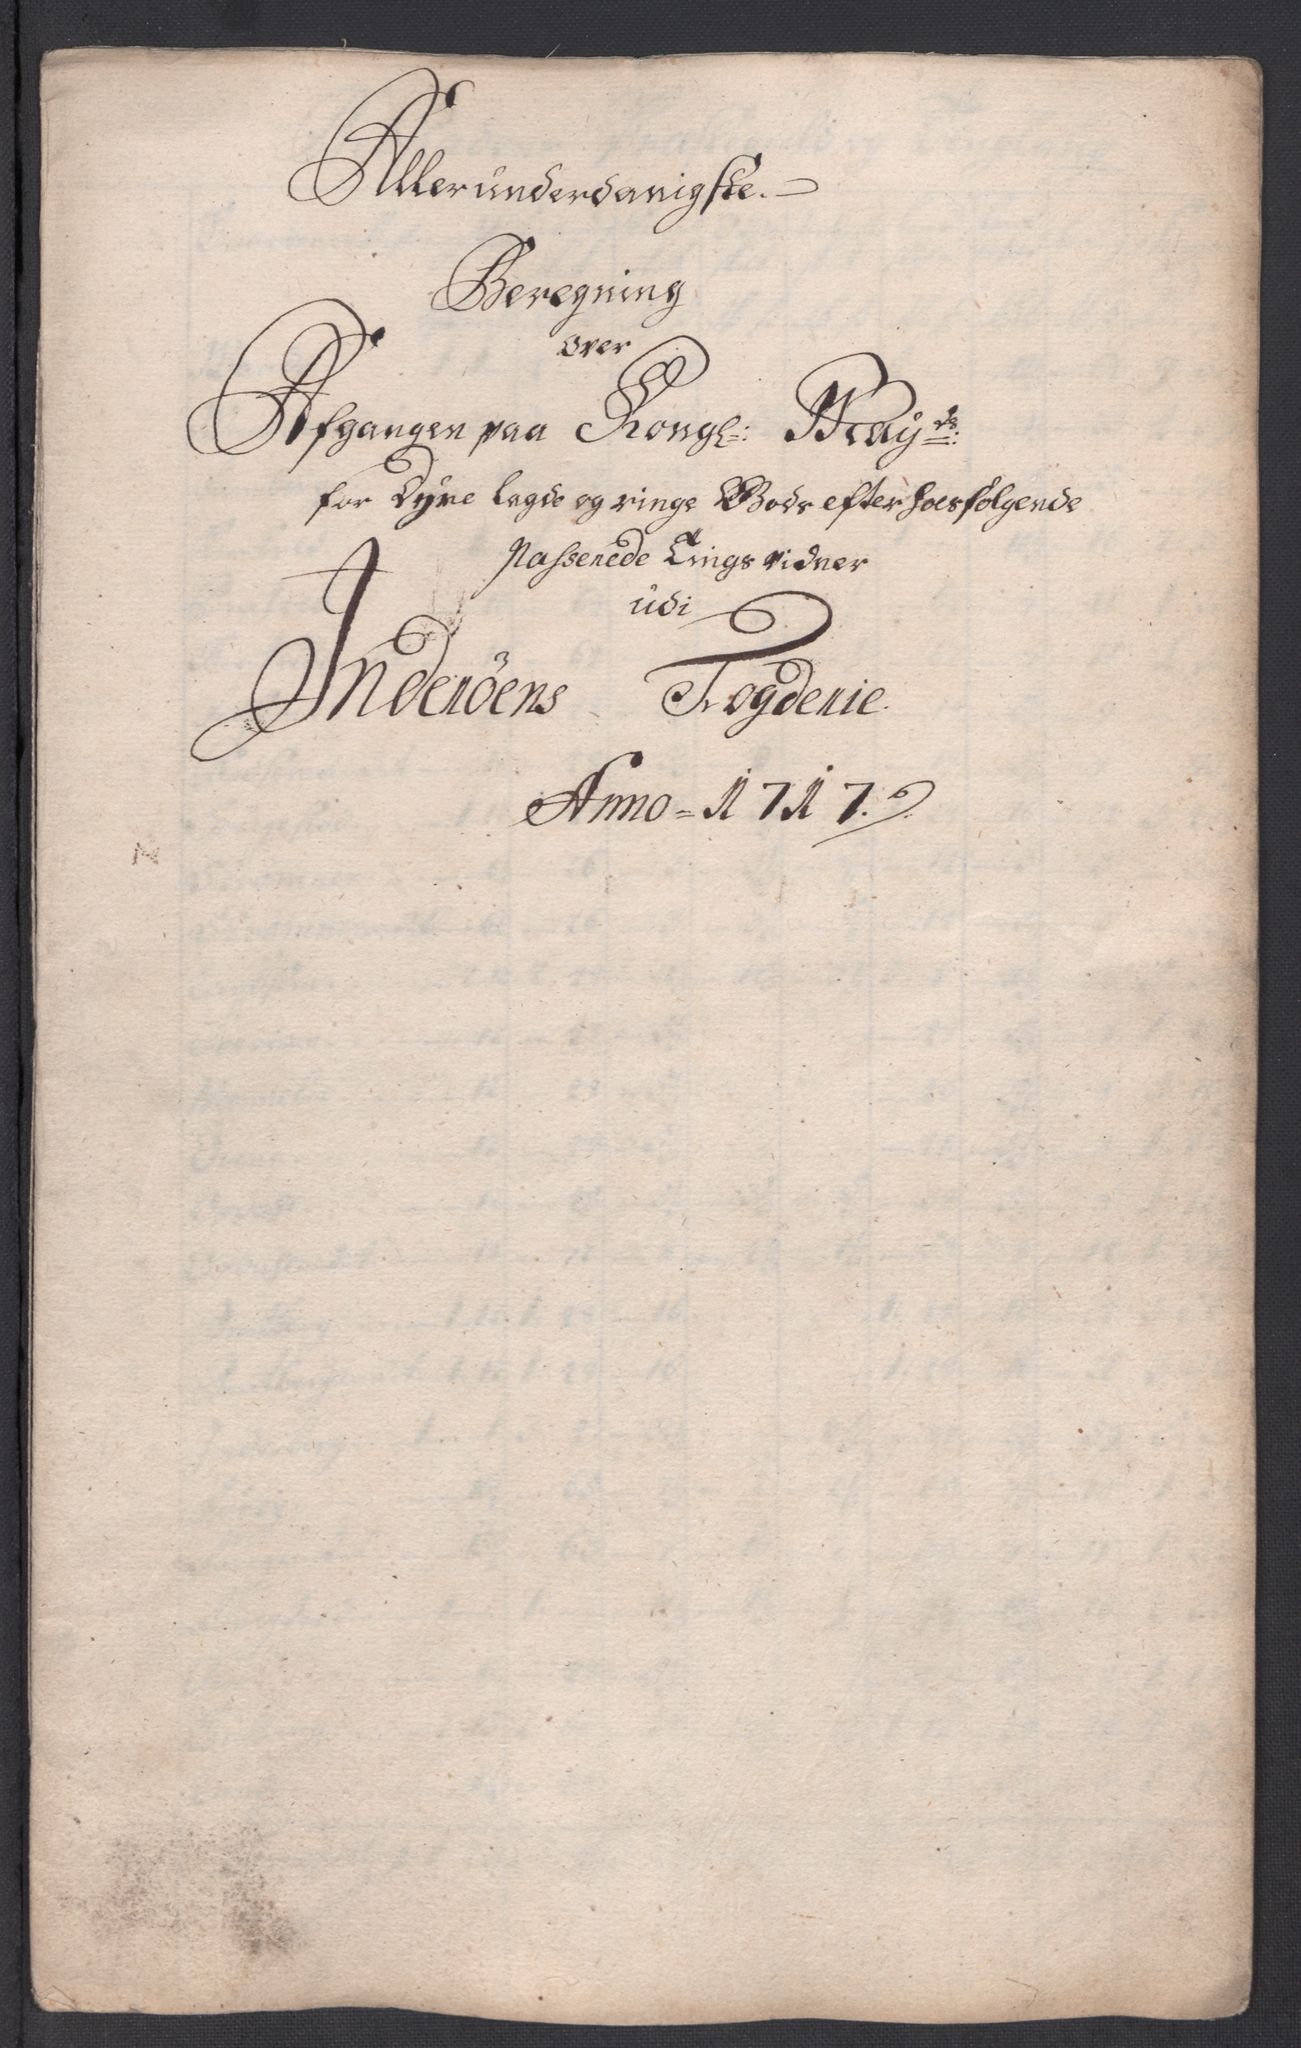 Allerunderdanigste.
Beregning
over
Afgangen paa Kongl: May:ds:
for Dyre lagde og ringe Gods efter hosfølgende
Passerede Tings vidner
udi
Inderöens Fogderie.
Anno = 1717.